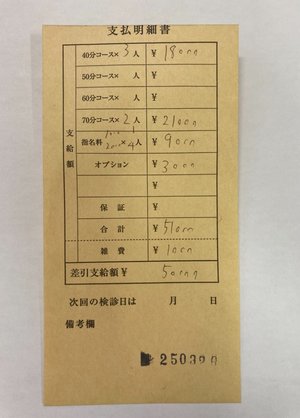 支払明細書
支給額
40分コース× 3人 ¥ 18000
50分コース× 人 ¥
60分コース× 人 ¥
70分コース× 2人 ¥ 21000
指名料 1000 1 2000 ×4人 ¥ 9000
オプション ¥ 3000
¥
保証 ¥
合計 ¥ 51000
雑費 ¥ 1000
差引支給額¥ 50000
次回の検診日は 月 日
備考欄